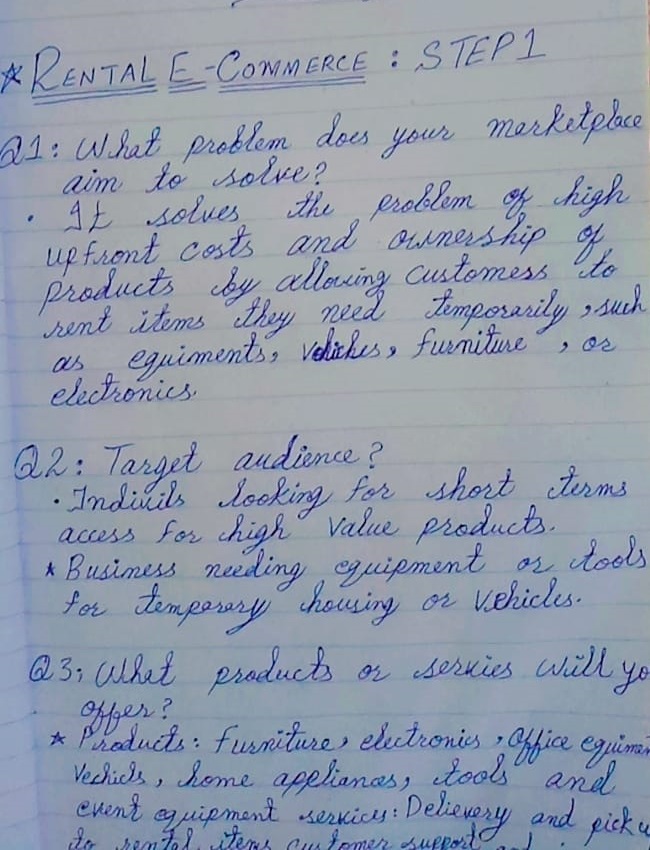 * RENTAL E-COMMERCE : STEP1
Q1: What problem does your marketplace
aim to solve?
• It solves the problem of high
upfront costs and ownership of
products by allowing customess to
rent items they need temporarily, such
as equiments, vehicles, furniture, or
electronics.
Q2: Target audience?
• Indivuils looking for short terms
access for high value products.
* Business needing equipment or tools
for temperary housing or vehicles.
Q3: What products or servies will yo
offer?
* Products: furniture, electronics, office equimen
Vechicls, home appliances, tools and
event equipment services: Delievery and pick u
to rental items customer support and